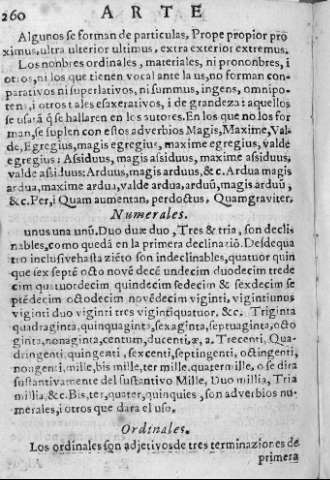 260 ARTE
Algunos se forman de particulas, Prope propior pro
ximus, ultra ulterior ultimus, extra exterior extremus.
Los nonbres ordinales, materiales, ni prononbres, i
otros, ni los que tienen vocal ante la us, no forman con-
parativos ni superlativos, ni summus, ingens, omnipo-
tens, i otros tales esaxerativos, i de grandeza: aquellos
se usarã q̃ se hallaren en los autores. En los que no los for
man, se suplen con estos adverbios Magis, Maxime, Val-
de, Egregius, magis egregius, maxime egregius, valde
egregius: Assiduus, magis assiduus, maxime assiduus,
valde assiduus: Arduus, magis arduus, &c. Ardua magis
ardua, maxime ardua, valde ardua, arduũ, magis arduũ,
&c. Per, i Quam aumentan, perdoctus, Quam graviter.
Numerales.
unus una unũ. Duo duæ duo, Tres & tria, son decli
nables, como quedã en la primera declinació. Desde qua
tro inclusive hasta ziéto son indeclinables, quatuor quin
que sex septé octo novē decē undecim duodecim trede
cim quatuordecim quindecim sedecim & sexdecim se
ptēdecim octodecim novēdecim viginti, viginti unus
viginti duo viginti tres viginti quatuor. &c. Triginta
quadraginta, quinquaginta, sexaginta, septuaginta, octo
ginta, nonaginta, centum, ducenti, æ, a. Trecenti, Qua-
dringenti, quingenti, sexcenti, septingenti, octingenti,
nongenti, mille, bis mille, ter mille, quater mille, o se dira
sustantivamente del sustantivo Mille, Duo millia, Tria
millia, &c. Bis, ter, quater, quinquies, son adverbios nu-
merales, i otros que dara el uso.
Ordinales.
Los ordinales son adjetivos de tres terminaziones de
primera